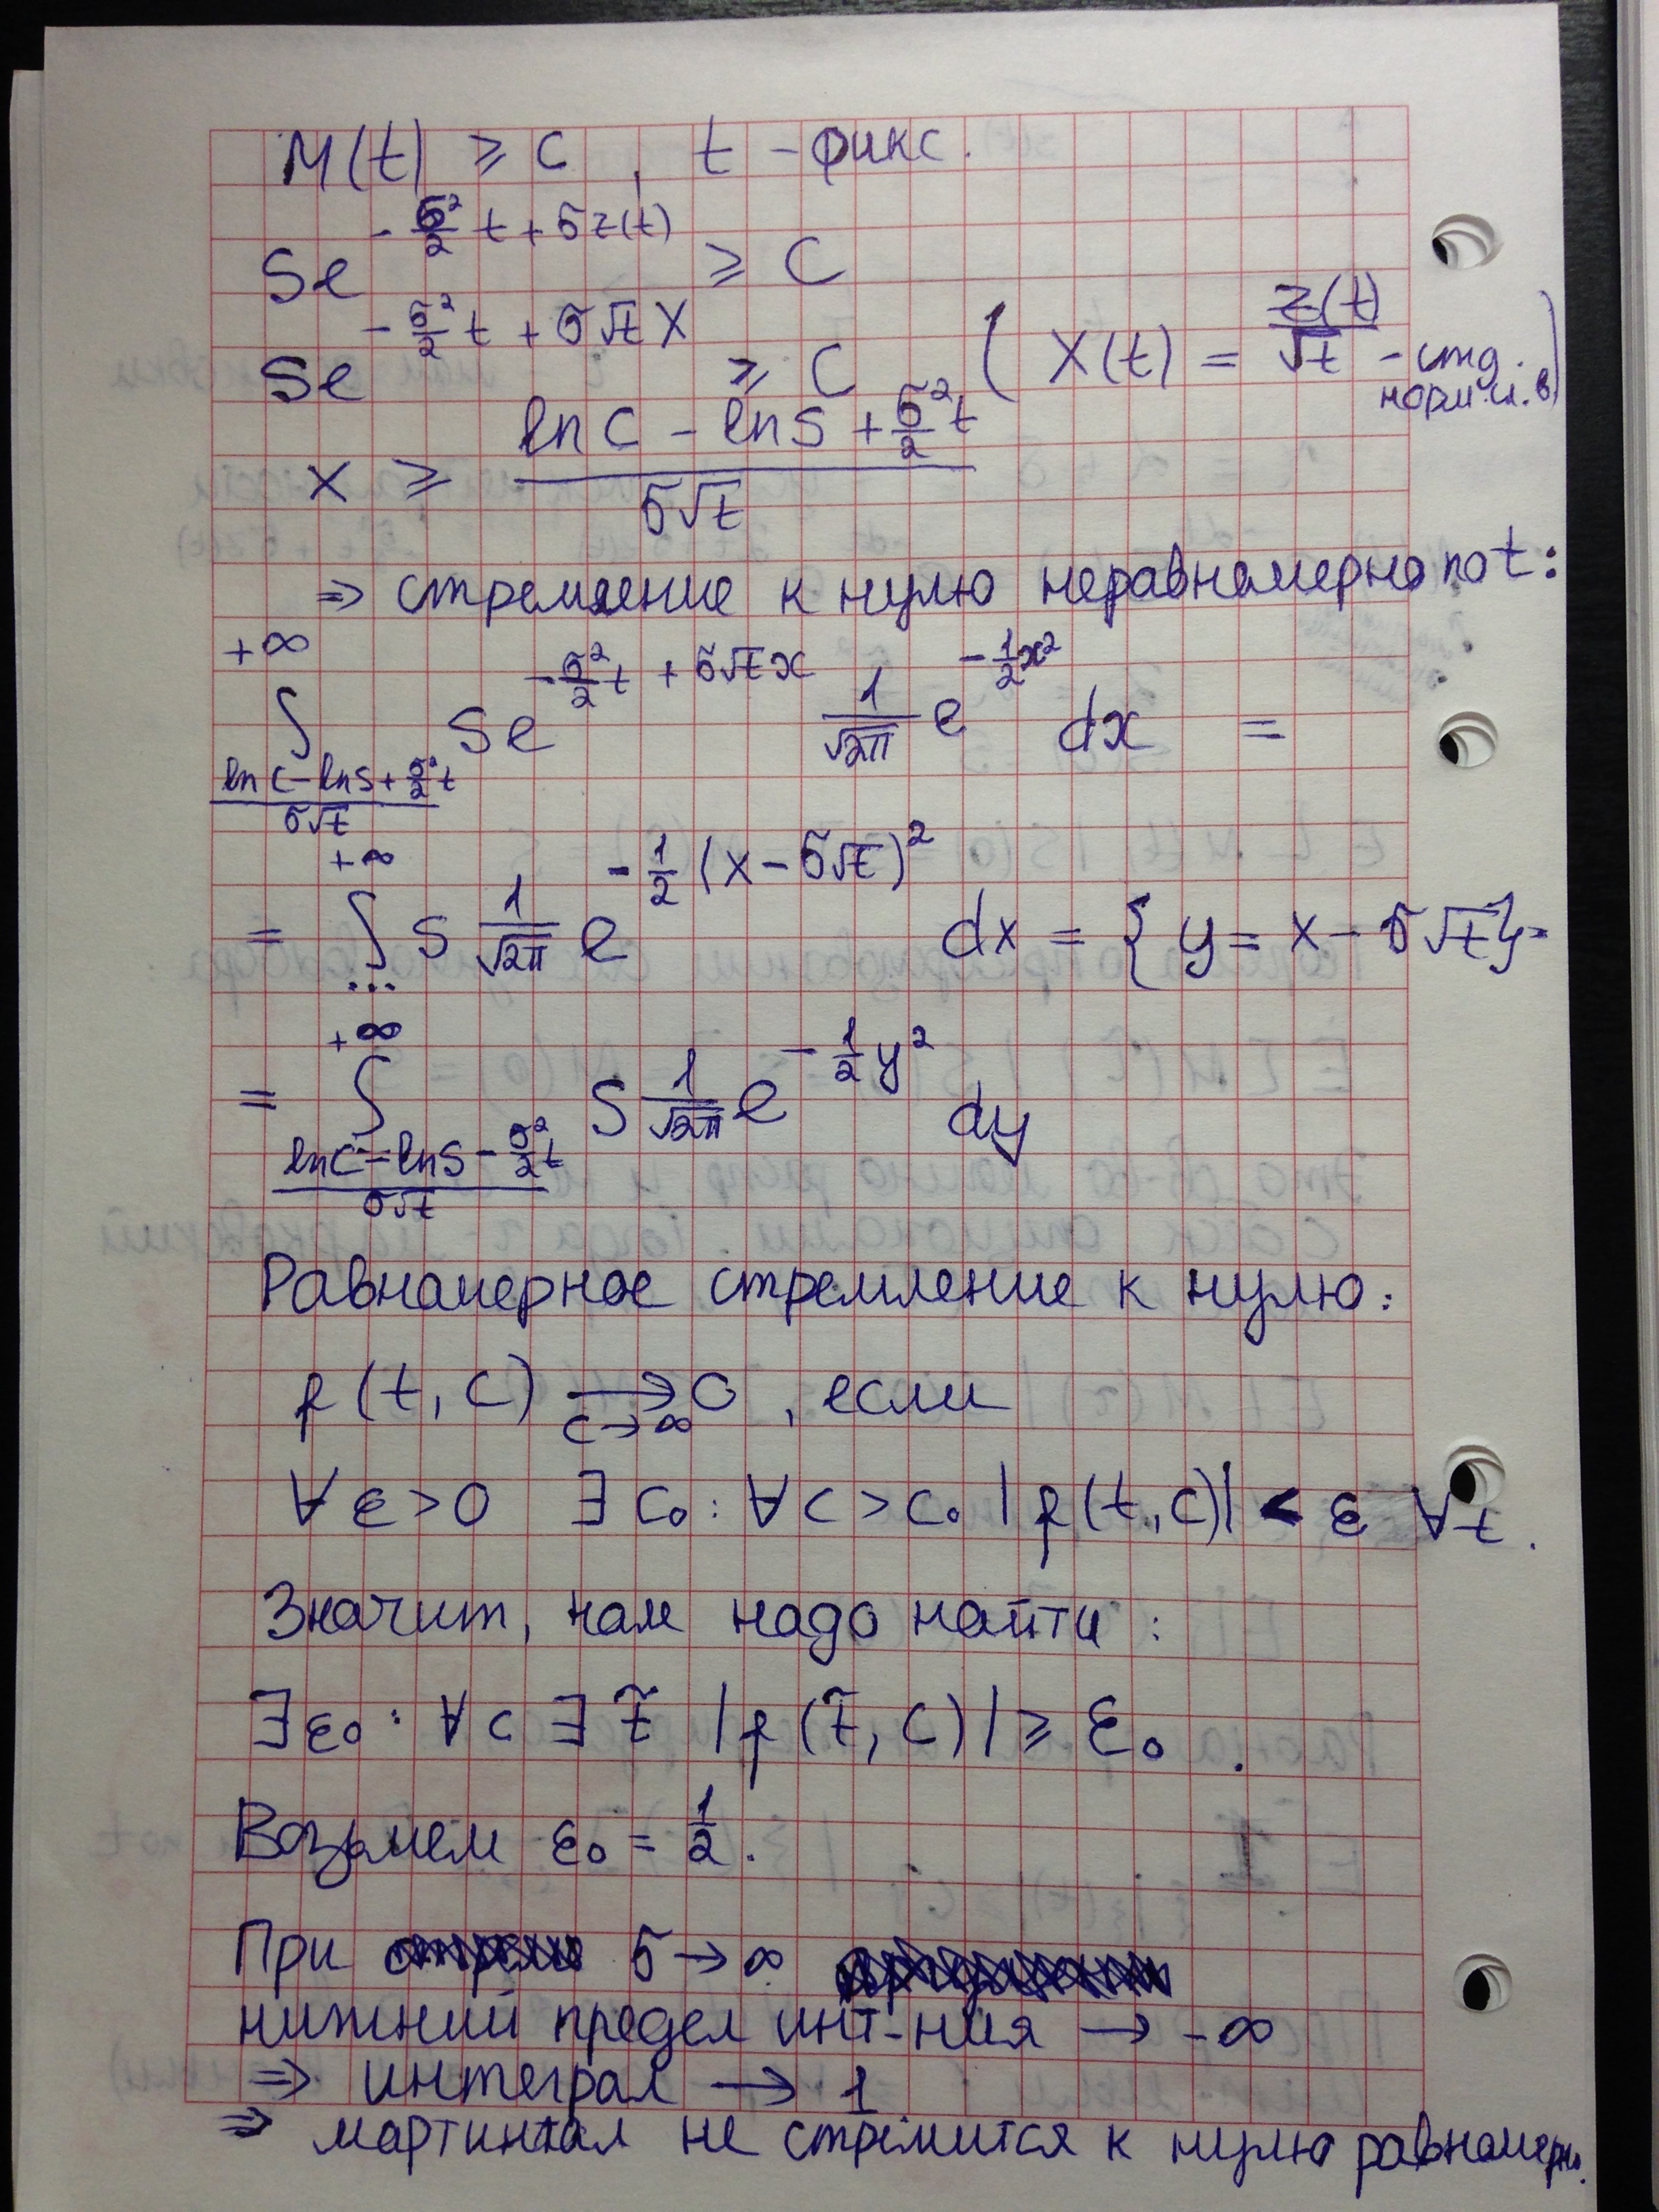 M(t) ≥ C, t - фикс.
Se^{-\frac{σ²}{2}t + σz(t)} ≥ C
Se^{-\frac{σ²}{2}t + σ√t X} ≥ C (X(t) = \frac{z(t)}{√t} - стд. норм. сл. в)
X ≥ \frac{ln C - ln S + \frac{σ²}{2}t}{σ√t}
⇒ стремление к нулю неравномерно по t:
∫_{\frac{ln C - ln S + \frac{σ²}{2}t}{σ√t}}^{+∞} Se^{-\frac{σ²}{2}t + σ√t x} \frac{1}{√2π} e^{-\frac{1}{2}x²} dx =
= ∫_{...}^{+∞} S \frac{1}{√2π} e^{-\frac{1}{2}(x - σ√t)²} dx = {y = x - σ√t} =
= ∫_{\frac{ln C - ln S - \frac{σ²}{2}t}{σ√t}}^{+∞} S \frac{1}{√2π} e^{-\frac{1}{2}y²} dy
Равномерное стремление к нулю:
f(t, c) ⟶_{c→∞} 0, если
∀ε > 0 ∃c₀: ∀c > c₀ |f(t, c)| < ε ∀t.
Значит, нам надо найти:
∃ε₀: ∀c ∃t̃ |f(t̃, c)| ≥ ε₀.
Возьмем ε₀ = \frac{1}{2}.
При σ → ∞
нижний предел инт-ния → -∞
⇒ интеграл → 1
⇒ мартингал не стремится к нулю равномерно.